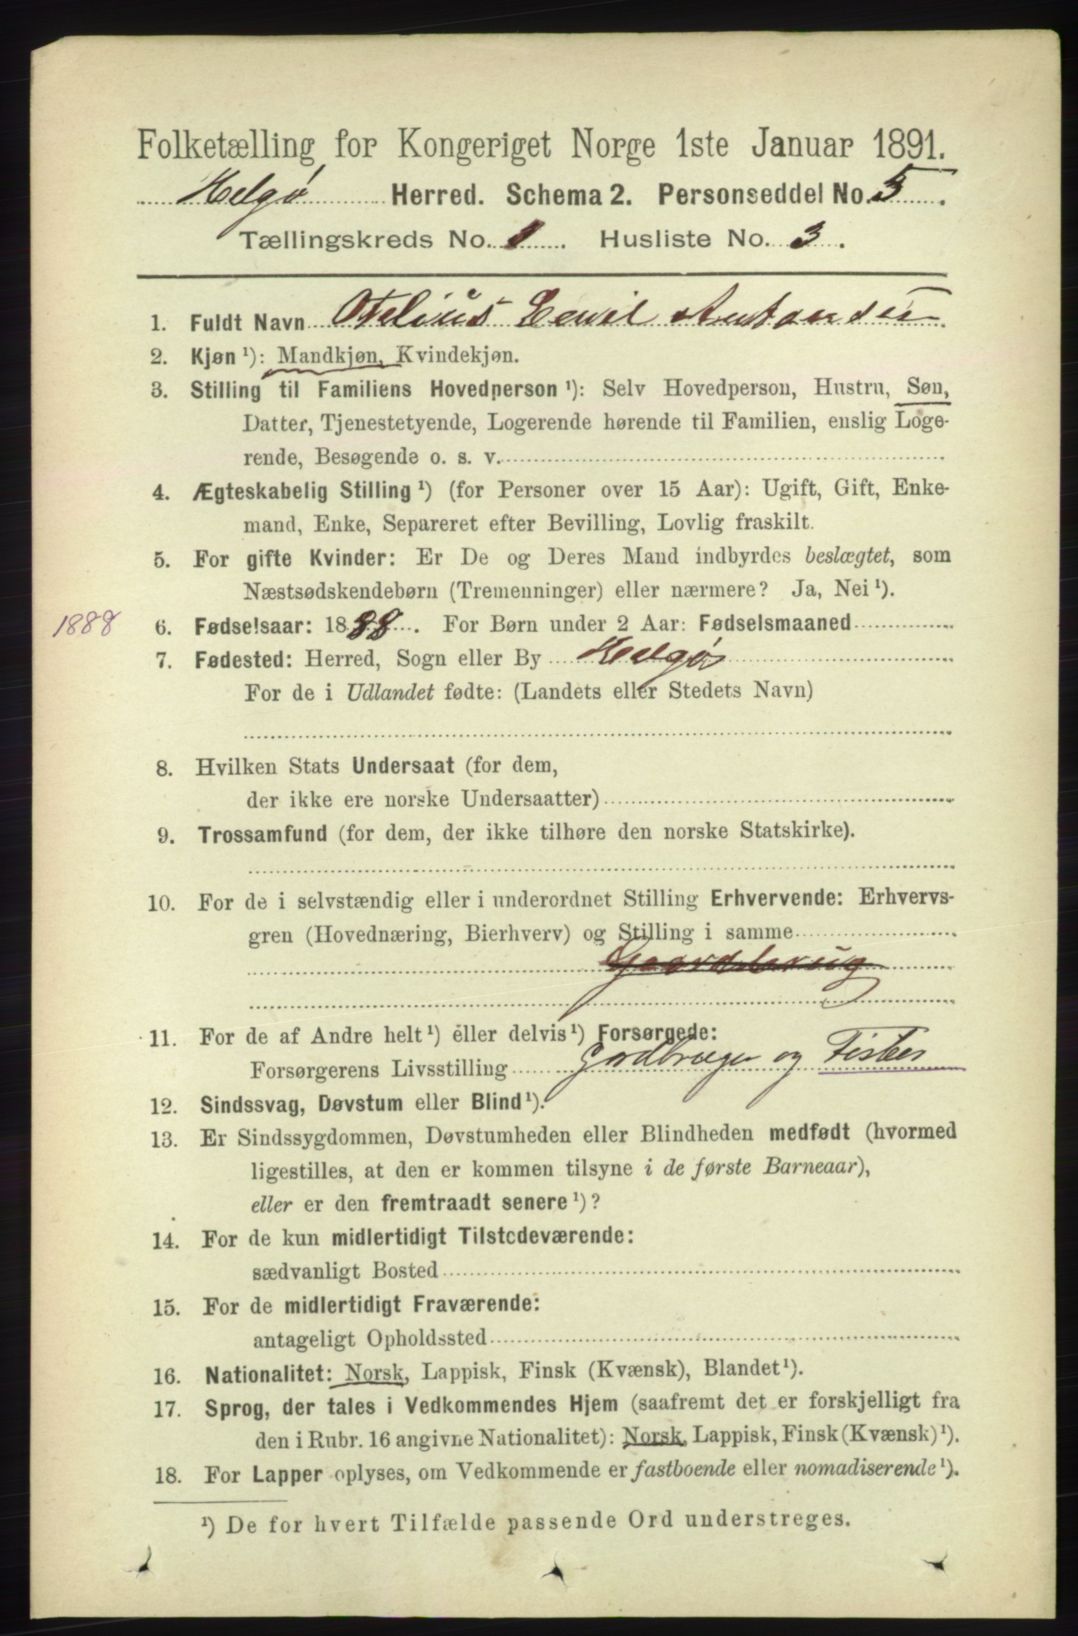 Folketælling for Kongeriget Norge 1ste Januar 1891.
Helgø Herred. Schema 2. Personseddel No. 5.
Tællingskreds No. 1. Husliste No. 3.
1. Fuldt Navn Otelius Emil Antonsen
2. Kjøn ¹): Mandkjøn, Kvindekjøn.
3. Stilling til Familiens Hovedperson ¹): Selv Hovedperson, Hustru, Søn,
Datter, Tjenestetyende, Logerende hørende til Familien, enslig Loge-
rende, Besøgende o. s. v.
4. Ægteskabelig Stilling ¹) (for Personer over 15 Aar): Ugift, Gift, Enke-
mand, Enke, Separeret efter Bevilling, Lovlig fraskilt.
5. For gifte Kvinder: Er De og Deres Mand indbyrdes beslægtet, som
Næstsødskendebørn (Tremenninger) eller nærmere? Ja, Nei ¹).
1888 6. Fødselsaar: 1888. For Børn under 2 Aar: Fødselsmaaned
7. Fødested: Herred, Sogn eller By Helgø
For de i Udlandet fødte: (Landets eller Stedets Navn)
8. Hvilken Stats Undersaat (for dem,
der ikke ere norske Undersaatter)
9. Trossamfund (for dem, der ikke tilhøre den norske Statskirke).
10. For de i selvstændig eller i underordnet Stilling Erhvervende: Erhvervs-
gren (Hovednæring, Bierhverv) og Stilling i samme
Gaardsbrug
11. For de af Andre helt ¹) eller delvis ¹) Forsørgede:
Forsørgerens Livsstilling Gardbruger og Fisker
12. Sindssvag, Døvstum eller Blind ¹).
13. Er Sindssygdommen, Døvstumheden eller Blindheden medfødt (hvormed
ligestilles, at den er kommen tilsyne i de første Barneaar),
eller er den fremtraadt senere ¹)?
14. For de kun midlertidigt Tilstedeværende:
sædvanligt Bosted
15. For de midlertidigt Fraværende:
antageligt Opholdssted
16. Nationalitet: Norsk, Lappisk, Finsk (Kvænsk), Blandet ¹).
17. Sprog, der tales i Vedkommendes Hjem (saafremt det er forskjelligt fra
den i Rubr. 16 angivne Nationalitet): Norsk, Lappisk, Finsk (Kvænsk) ¹).
18. For Lapper oplyses, om Vedkommende er fastboende eller nomadiserende ¹).
¹) De for hvert Tilfælde passende Ord understreges.